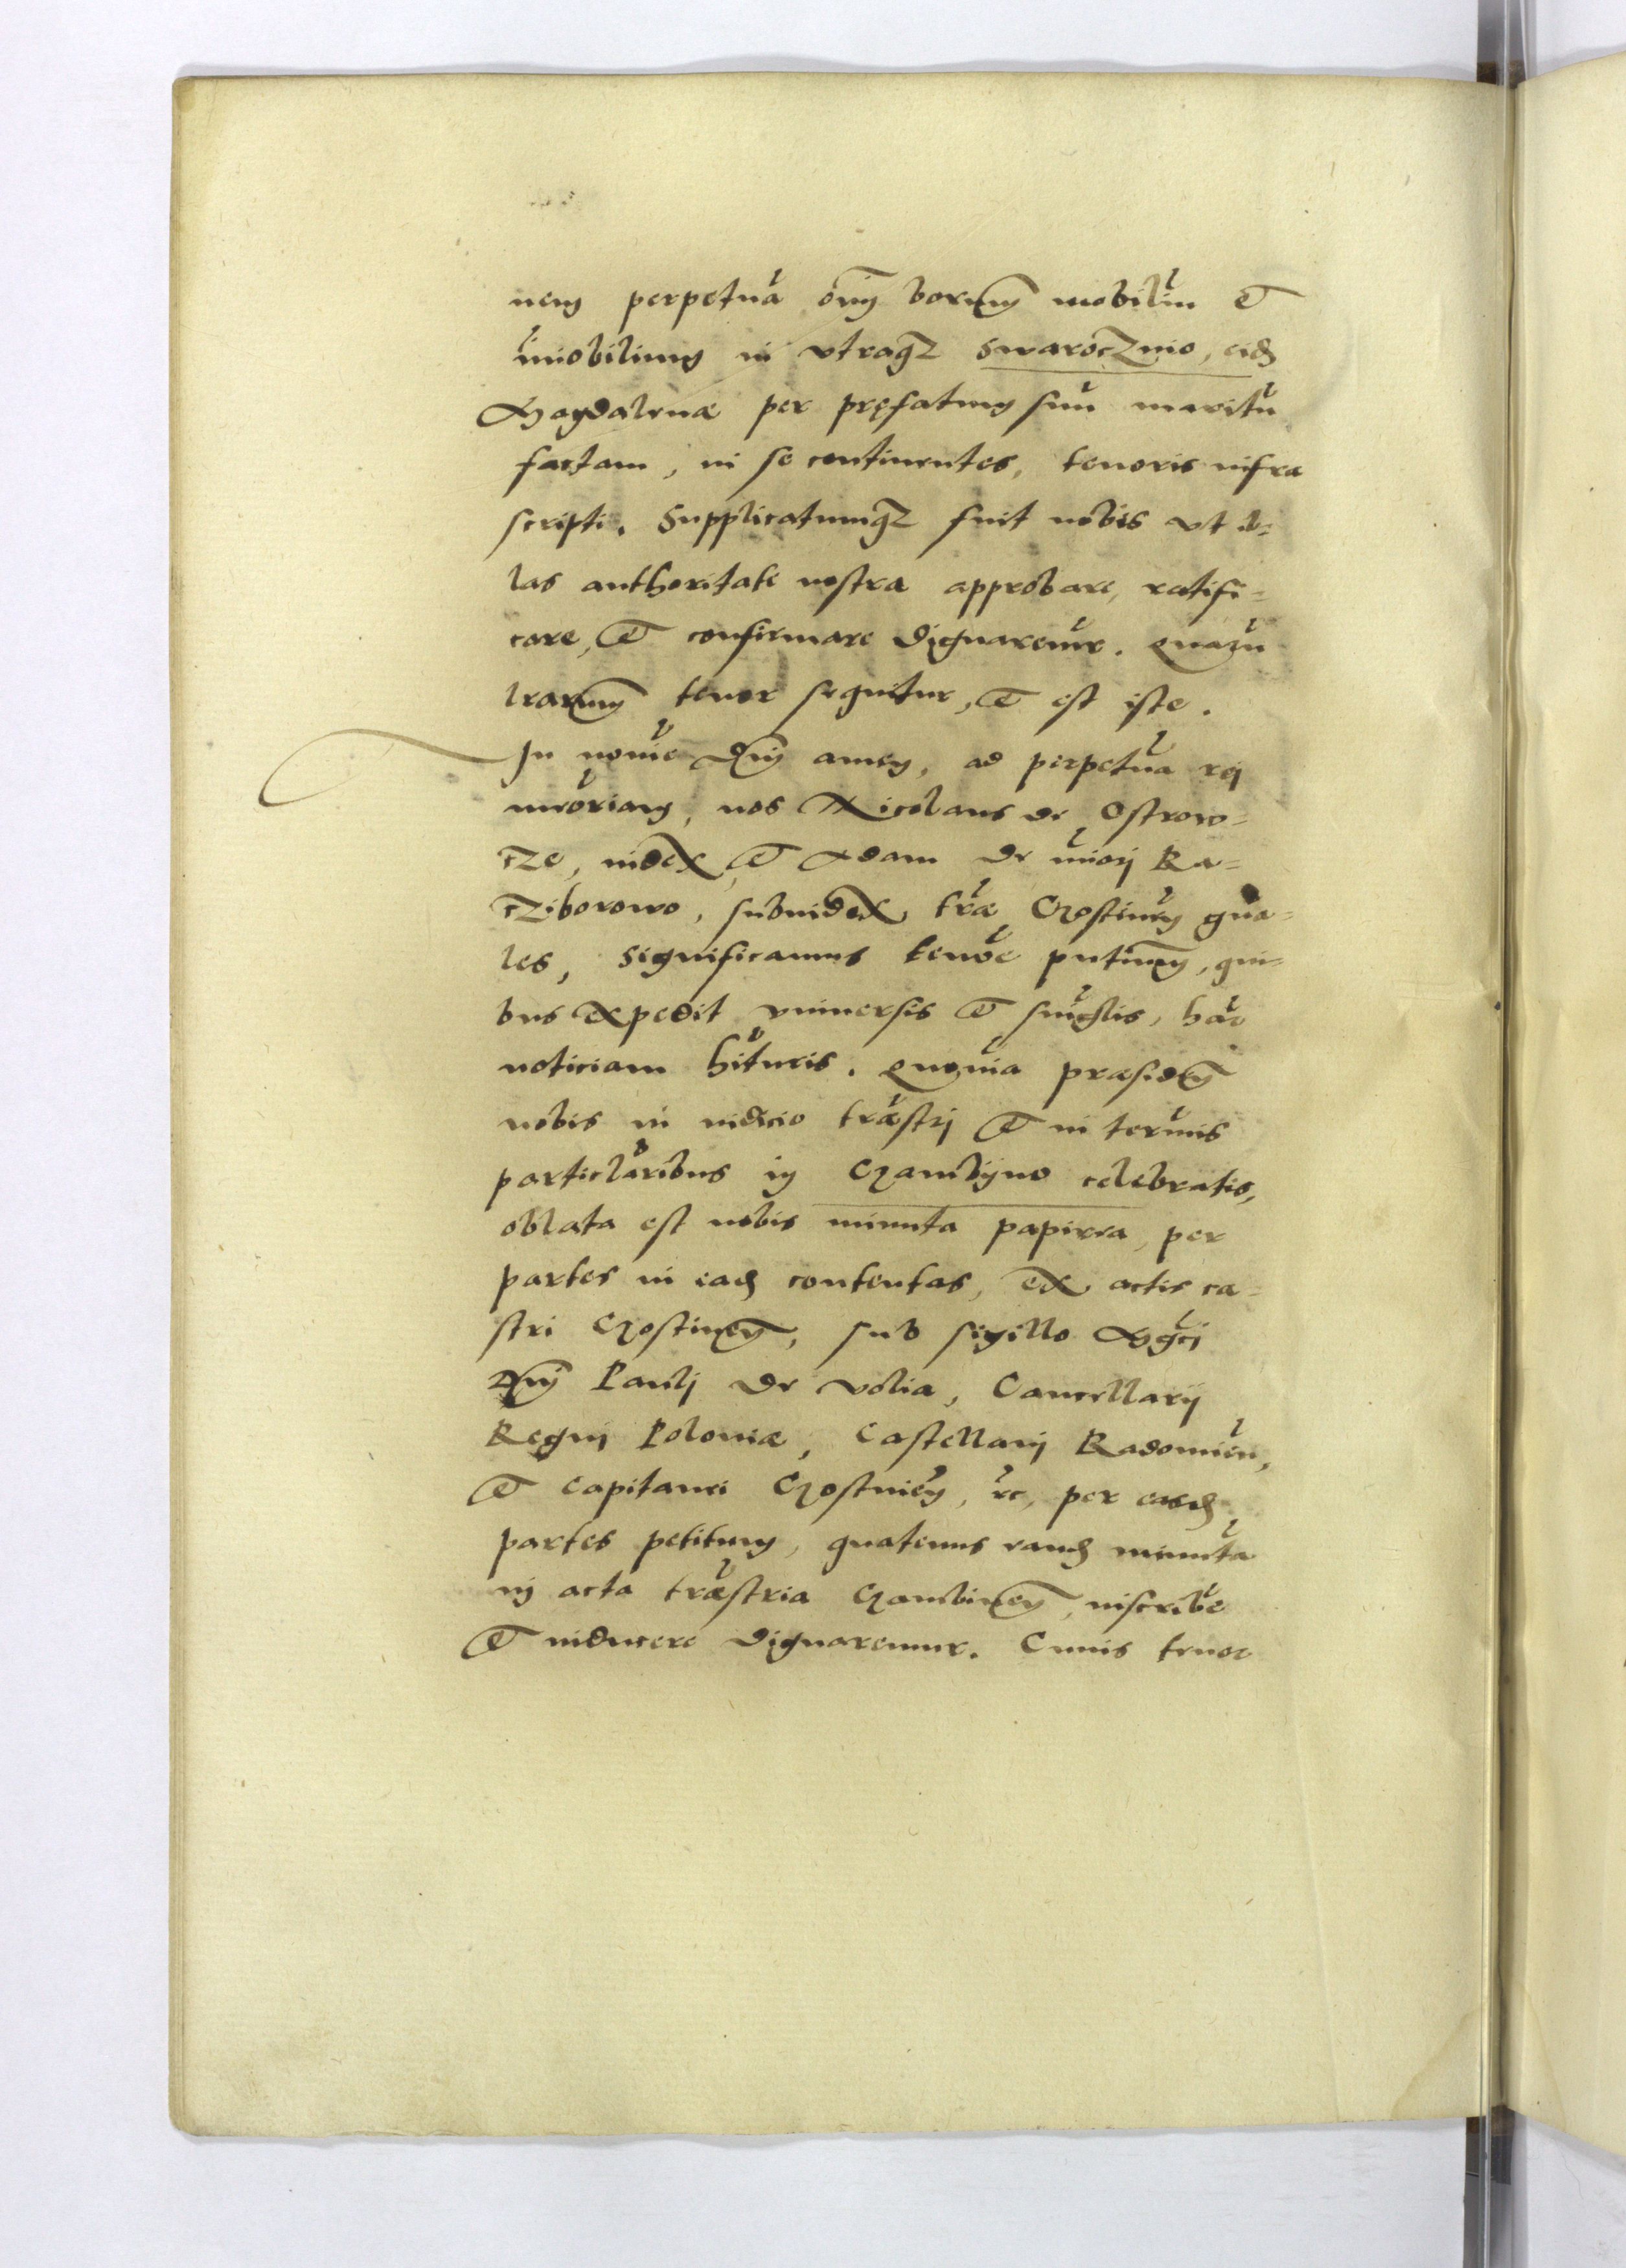 nem perpetuā om̄ bonorum mobiliū et
im̄obilium in vtraq3 Swarocznio, eid
Magdalenæ per pręfatum suū maritū
factam, in se continentes, tenoris infra
scripti. Supplicatumq3 fuit nobis vt il=
las authoritate nostra approbare, ratifi=
care, et confirmare dignaremur. Quarū
lrarum tenor sequitur, et est iste.
In nomīe Dnī amen, ad perpetuā rej
memoriam, nos Nicolaus de Ostrow=
cze, iudex et Adam de mīorj Ra=
cziborowo, subiudex trǣ Czostineñ gñā=
les, significamus tenōre pñtium, qui=
bus expedit vniuersis et sinǵlis, hāc
noticiam hīturis. Quōnia præsideñ
nobis in iudicio trǣstrj et in termīs
particlāribus in Czambijno celebratis,
oblata est nobis minuta papirea, per
partes in ead contentas, ex actis ca=
stri Czostineñ, sub sigillo Mgćj
Dnī Paulj de Volia, Cancellarij
Regnj Poloniæ, Castellanj Radomieñ,
et Capitanei Czostineñ, &c, per easd
partes petitum, quatenus eand minutā
in acta trǣstria Czambineñ, inscribēe
et inducere dignaremur. Cuius tenor